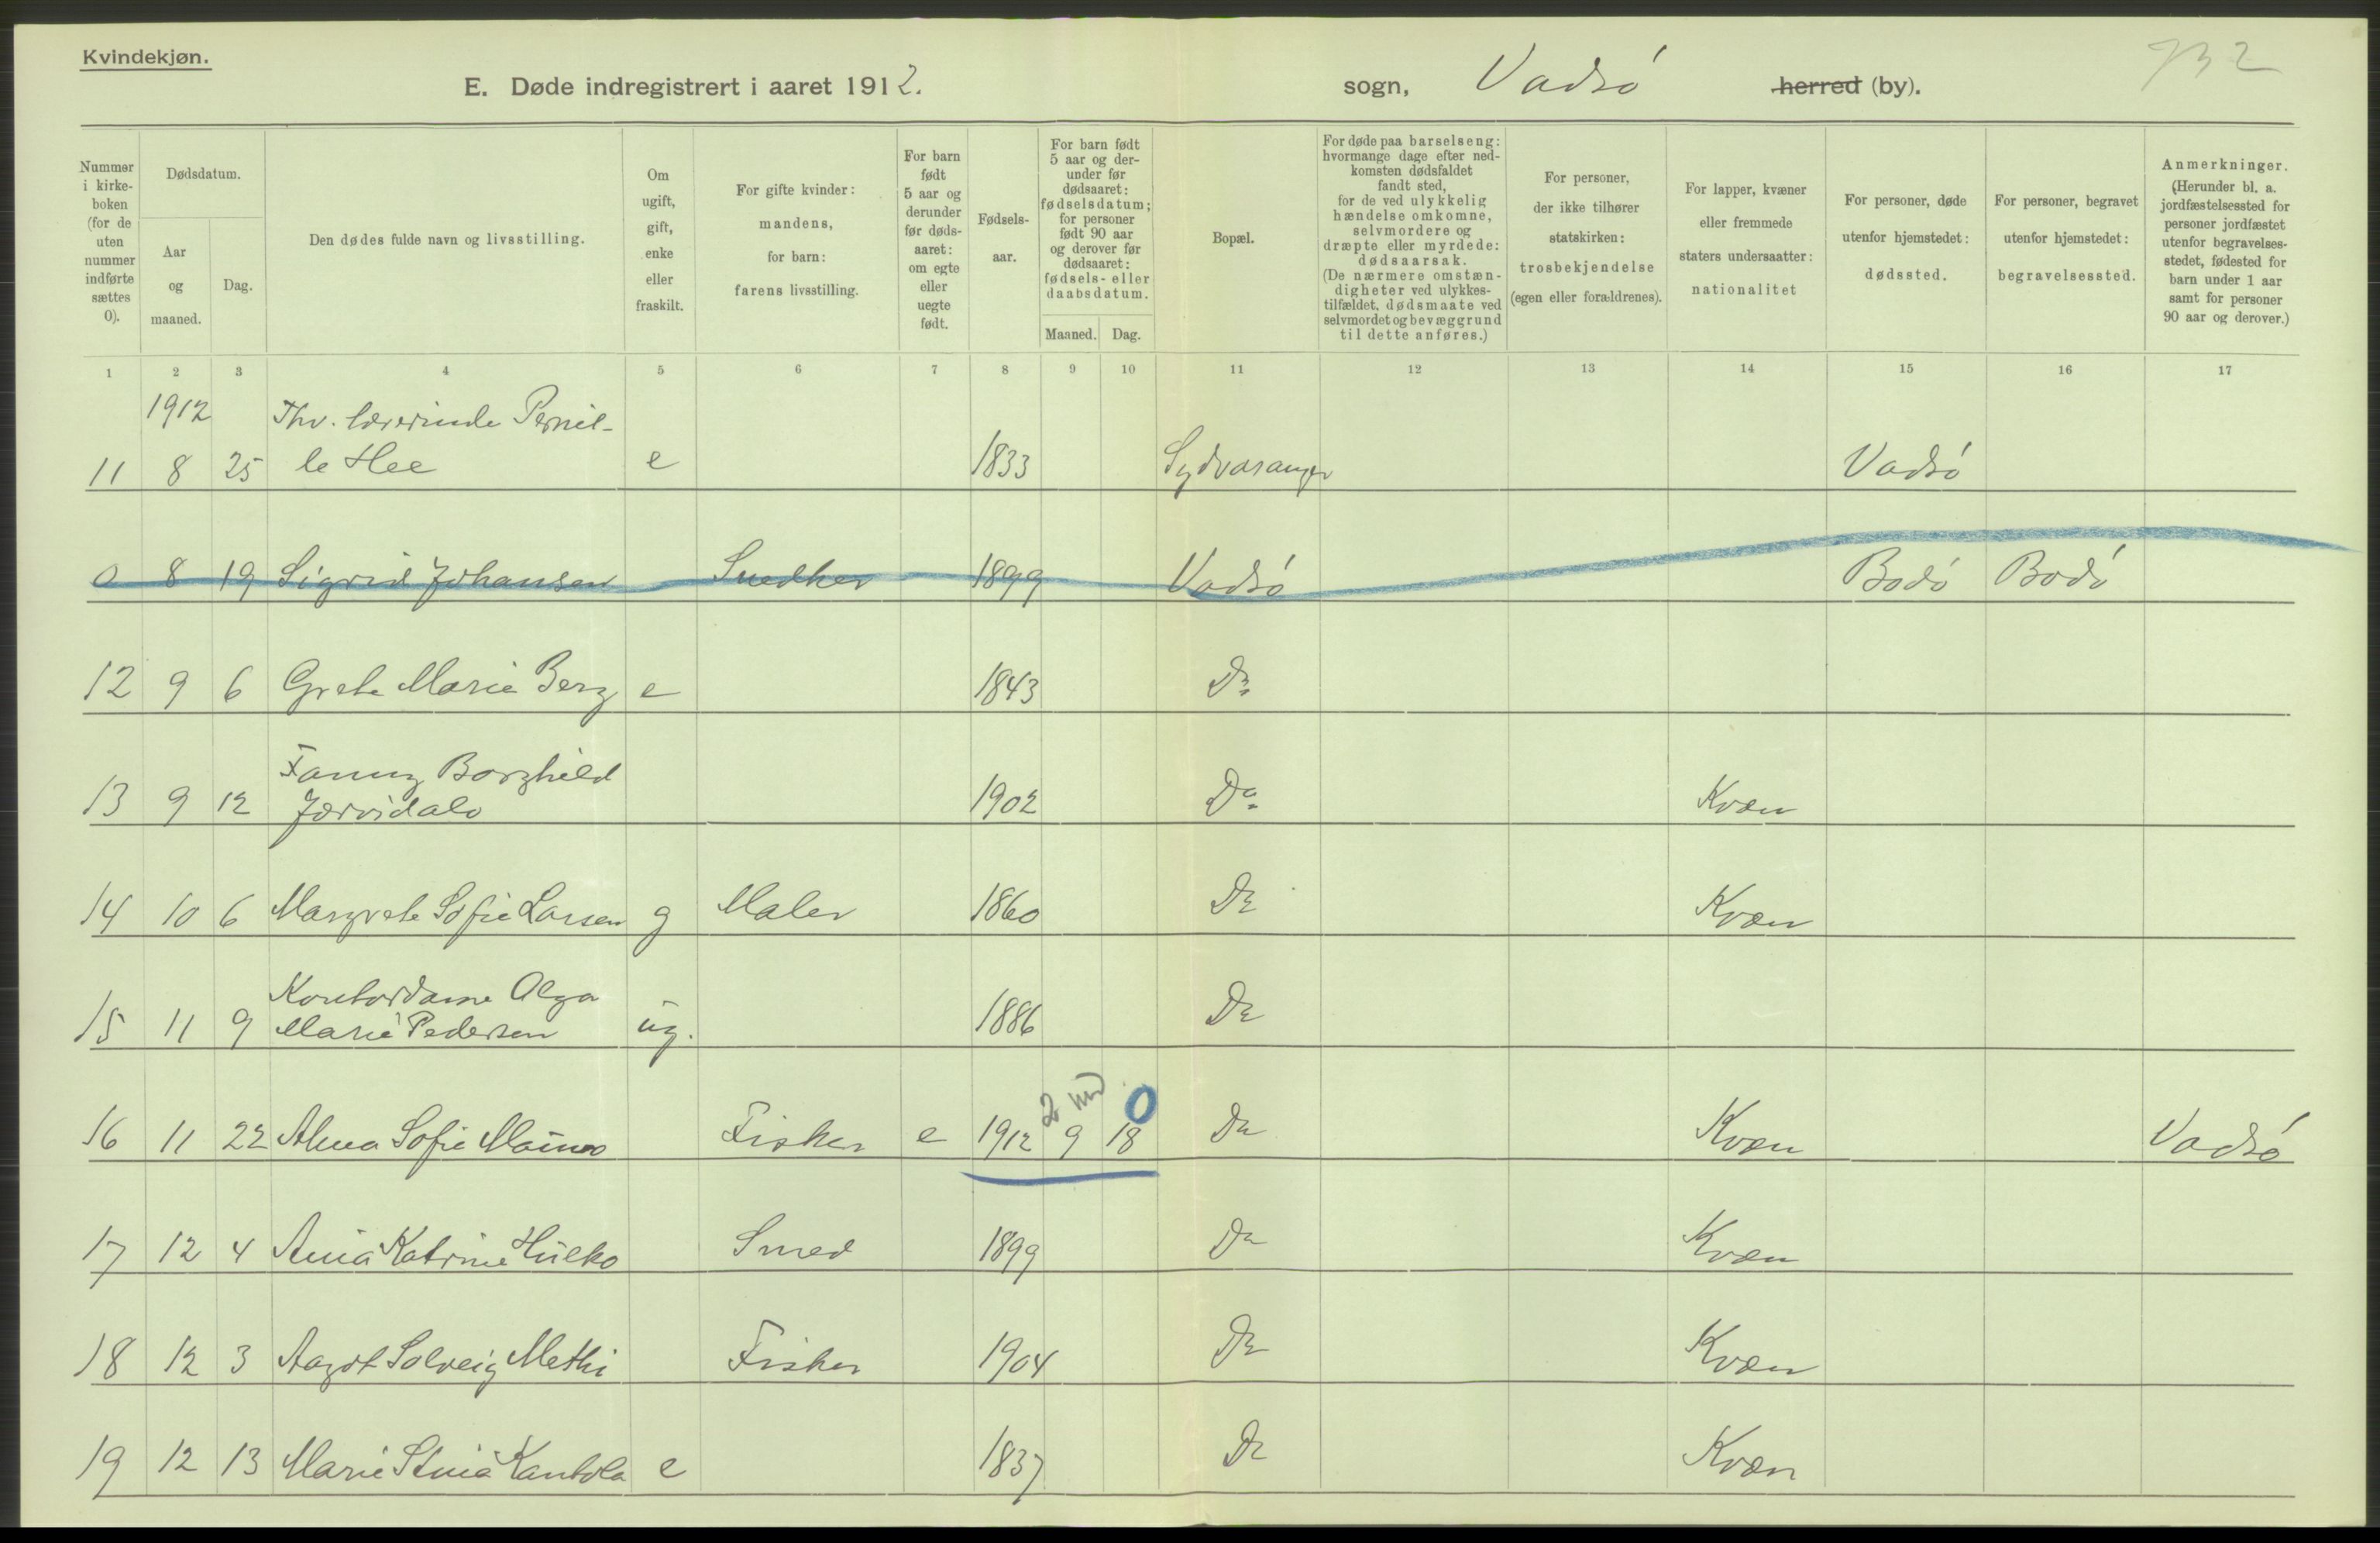 Kvindekjøn.
732
E. Døde indregistrert i aaret 1912. sogn, Vadsö herred (by).
Nummer i kirkeboken (for de uten nummer indførte sættes 0).
Dødsdatum.
Aar og maaned.
Dag.
Den dødes fulde navn og livsstilling.
Om ugift, gift, enke eller fraskilt.
For gifte kvinder: mandens, for barn: farens livsstilling.
For barn født 5 aar og derunder før dødsaaret: om egte eller uegte født.
Fødselsaar.
For barn født 5 aar og derunder før dødsaaret: fødselsdatum; for personer født 90 aar og derover før dødsaaret: fødsels- eller daabsdatum.
Maaned. Dag.
Bopæl.
For døde paa barselseng: hvormange dage efter nedkomsten dødsfaldet fandt sted, for de ved ulykkelig hændelse omkomne, selvmordere og dræpte eller myrdede: dødsaarsak. (De nærmere omstændigheter ved ulykkestilfældet, dødsmaate ved selvmordet og bevæggrund til dette anføres.)
For personer, der ikke tilhører statskirken: trosbekjendelse (egen eller forældrenes).
For lapper, kvæner eller fremmede staters undersaatter: nationalitet
For personer, døde utenfor hjemstedet: dødssted.
For personer, begravet utenfor hjemstedet: begravelsessted.
Anmerkninger. (Herunder bl. a. jordfæstelsessted for personer jordfæstet utenfor begravelsesstedet, fødested for barn under 1 aar samt for personer 90 aar og derover.)
1 2 3 4 5 6 7 8 9 10 11 12 13 14 15 16 17
1912 Fhv. lærerinde Pernil-
11 8 25 le Hee e 1833 Sydvaranger Vadsö
0 8 19 Sigrid Johansen Snedker 1899 Vadsö Bodö Bodö
12 9 6 Grete Marie Berg e 1843 Do
Fanny Borghild
13 9 12 Jærvidalo 1902 Do Kvæn
14 10 6 Margrete Sofie Larsen g Maler 1860 Do Kvæn
Kontordame Olga
15 11 9 Marie Pedersen ug. 1886 Do
2 md 0
16 11 22 Alma Sofie Fisker e 1912 9 18 Do Kvæn Vadsö
17 12 4 Anna Katrine Smed 1899 Do Kvæn
18 12 3 Aagot Solveig Methi Fisker 1904 Do Kvæn
19 12 13 Marie Stina Kantola e 1837 Do Kvæn